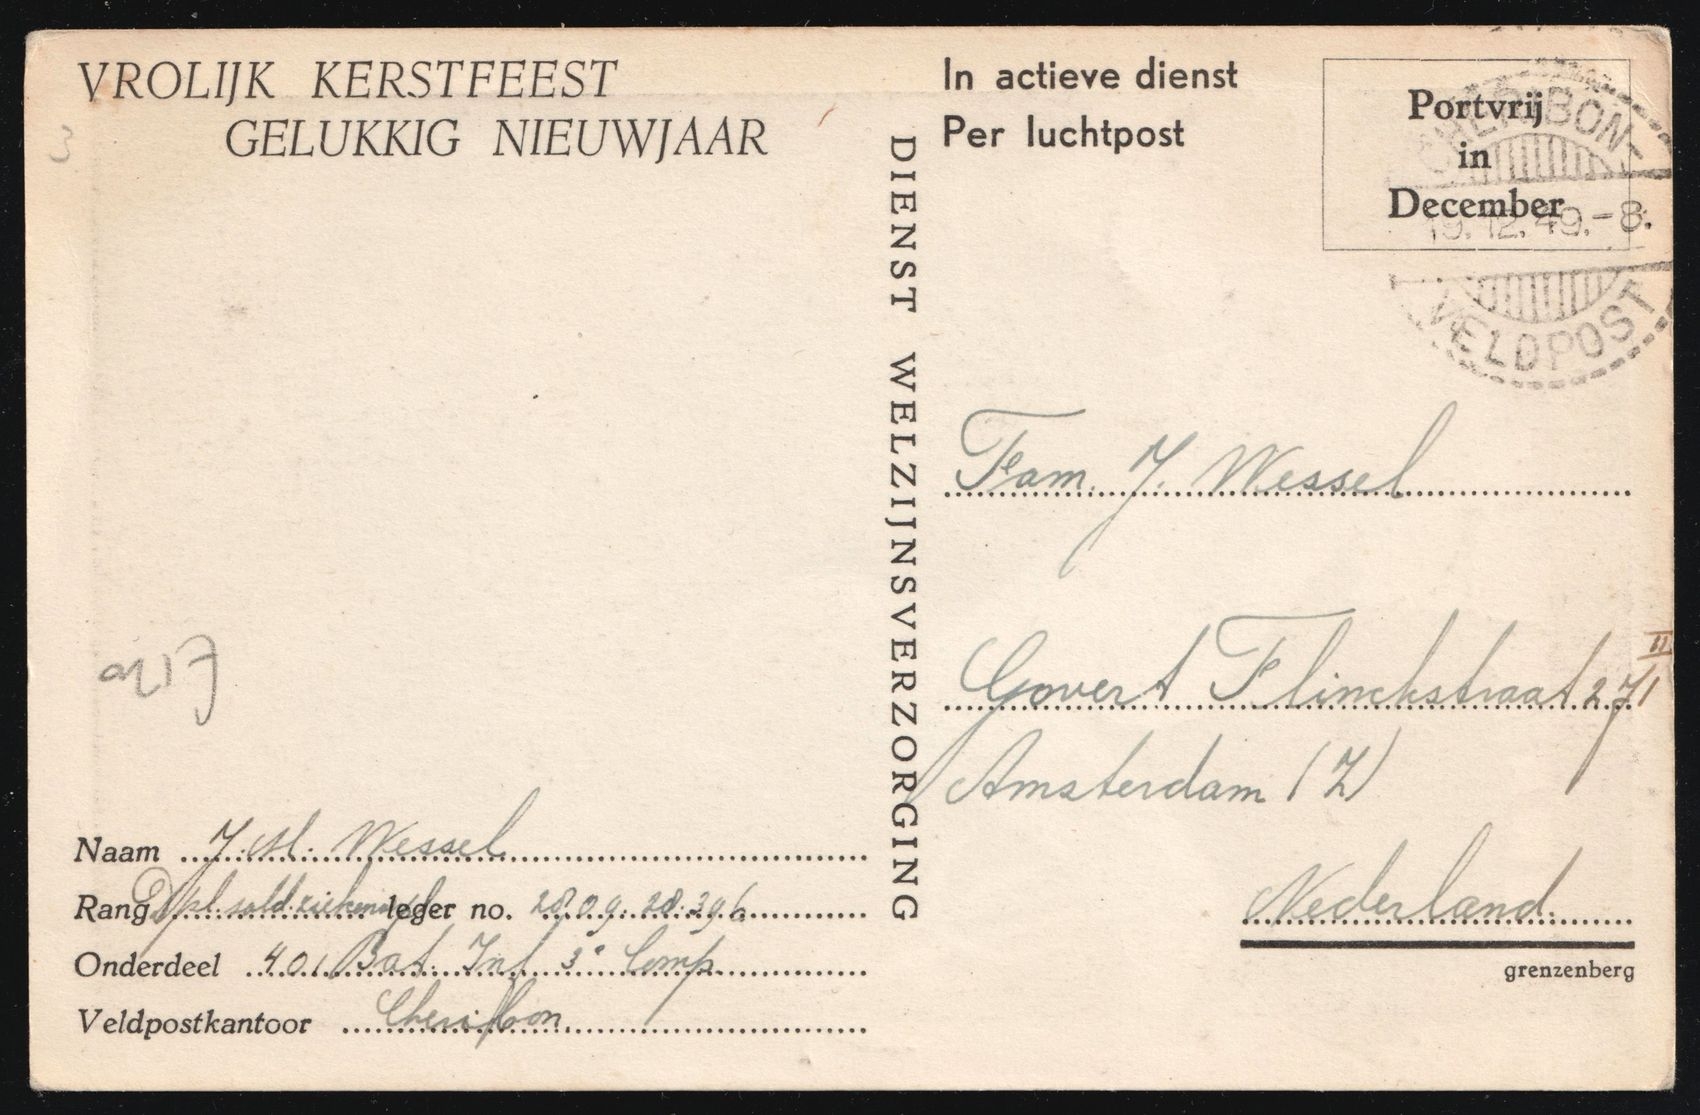 VROLIJK KERSTFEEST
GELUKKIG NIEUWJAAR
3
Naam J. M. Wessel
Rang Dpl. sold. leger no. 28.09.28.396
Onderdeel 401 Bat. Inf 3e Comp
Veldpostkantoor Cheribon
DIENST WELZIJNSVERZORGING
In actieve dienst
Per luchtpost
Portvrij
in
December
CHERIBON-
19.12.49.-8.
VELDPOST
Fam. J. Wessel
Govert Flinckstraat 271 II
Amsterdam (Z)
Nederland
grenzenberg